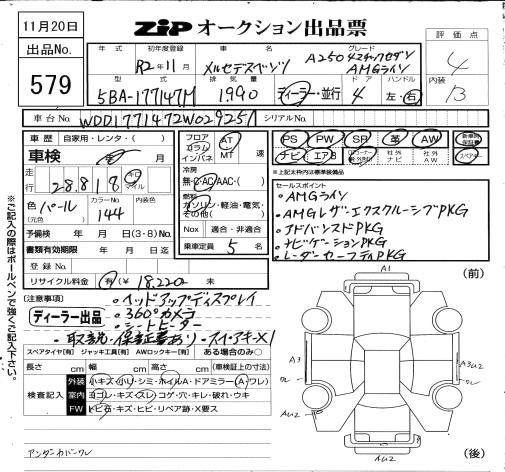 11月20日
出品No.
579
ZIP オークション出品票
評価点
4
内装
B
年式
初年度登録
R2年11月
車名
メルセデスベンツ
グレード
A250 4マチックセダン
AMGライン
型式
5BA-177147M
排気量
1990
ディーラー・並行
ドア
4
ハンドル
左・右
車台No.
WDD1771472W029257
シリアルNo.
車歴
自家用・レンタ・( )
車検
年 月
走行
28,818
キロ
マイル
色
(元色)
パール
カラーNo.
144
内装色
予備検 年 月 日(3・8)No.
書類有効期限 年 月 日迄
登録No.
リサイクル料金 有(¥ 18,220 未
フロア
コラム
インパネ
AT
MT
速
冷房
無・C・AC・AAC・( )
燃料
ガソリン・軽油・電気・
その他( )
Nox 適合・非適合
乗車定員 5 名
PS
PW
SR
革
AW
新車時保証書
ナビ
エアB
社外
ナビ
社外
AW
スペアキー
※上記太枠内は標準装備品
セールスポイント
・AMGライン
・AMGレザーエクスクルーシブPKG
・アドバンスドPKG
・ナビゲーションPKG
・レーダーセーフティPKG
※ご記入の際はボールペンで強くご記入下さい。
注意事項
ディーラー出品
・ヘッドアップディスプレイ
・360°カメラ
・シートヒーター
・取説・保証書あり・スペアキー×1
スペアタイヤ[有] ジャッキ工具[有] AWロックキー[有] ある場合のみ○
長さ cm 幅 cm 高さ cm (車検証上の寸法)
検査記入
外装
小キズ・小U・シミ・ホイルA・ドアミラー(A・ワレ)
室内
ヨゴレ・キズ・スレ・コゲ・穴・キレ・破れ・ウキ
FW
トビ石・キズ・ヒビ・リペア跡・X要ス
アンダーカバーワレ
(前)
A1
A3
ワレ
A3U2
ワレ
AU2
AU2
AU2
(後)